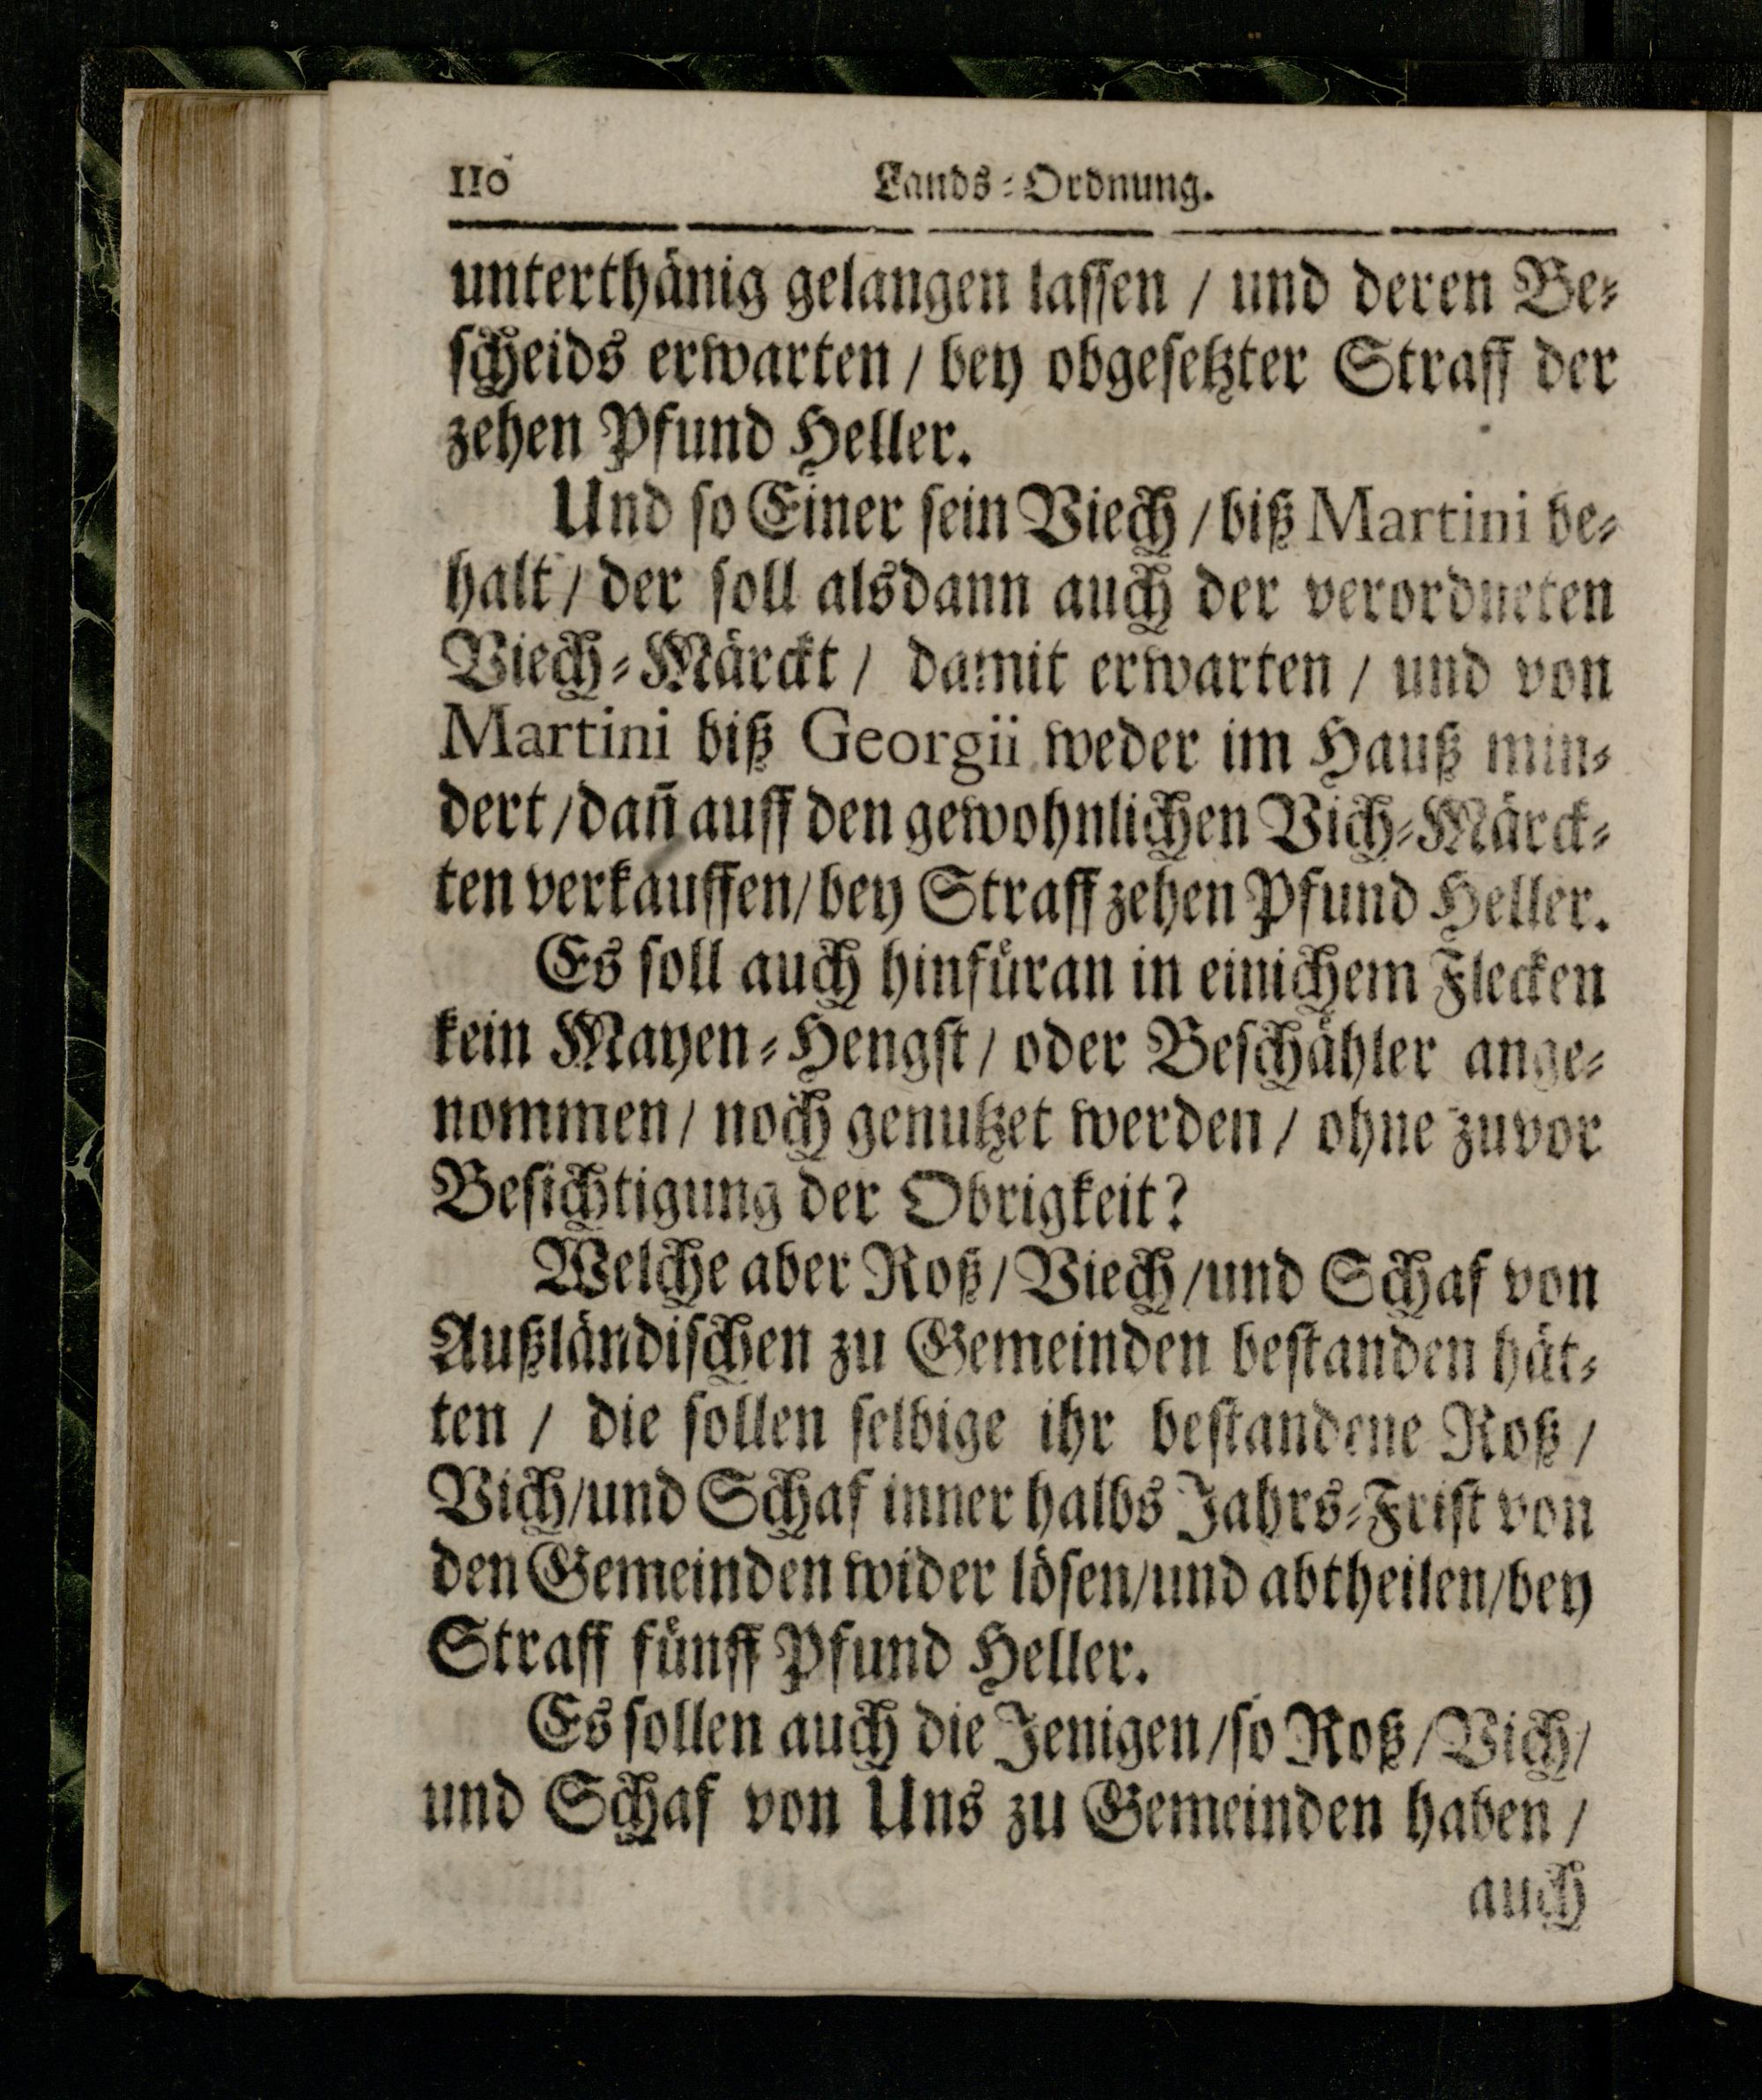 110 Lands-Ordnung.
unterthänig gelangen lassen / und deren Be-
scheids erwarten / bey obgesetzter Straff der
zehen Pfund Heller.
Und so Einer sein Viech / biß Martini be-
halt / der soll alsdann auch der verordneten
Viech-Märckt / damit erwarten / und von
Martini biß Georgii weder im Hauß min-
dert / dañ auff den gewohnlichen Vich-Märck-
ten verkauffen / bey Straff zehen Pfund Heller.
Es soll auch hinfüran in einichem Flecken
kein Mayen-Hengst / oder Beschähler ange-
nommen / noch genutzet werden / ohne zuvor
Besichtigung der Obrigkeit?
Welche aber Roß / Viech / und Schaf von
Außländischen zu Gemeinden bestanden hät-
ten / die sollen selbige ihr bestandene Roß /
Vich / und Schaf inner halbs Jahrs-Frist von
den Gemeinden wider lösen / und abtheilen / bey
Straff fünff Pfund Heller.
Es sollen auch die Jenigen / so Roß / Vich /
und Schaf von Uns zu Gemeinden haben /
auch